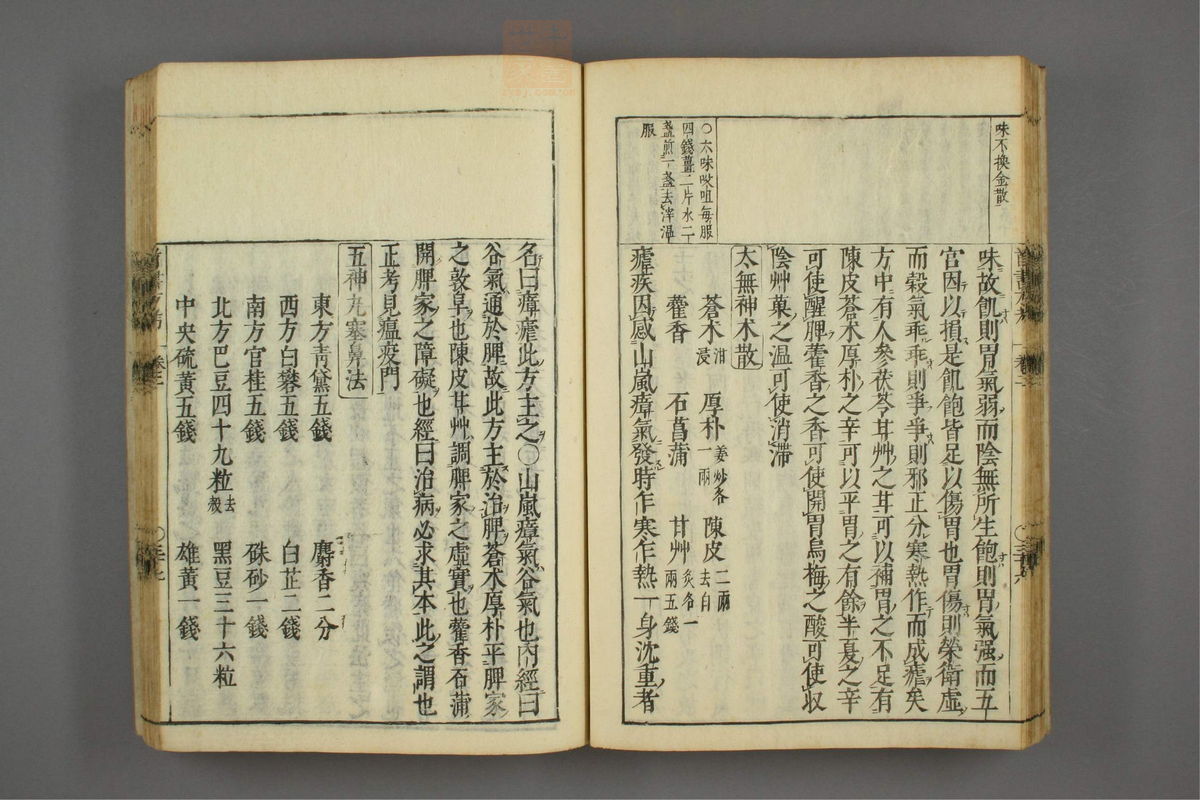 味不換金散
味故飢則胃氣弱而陰無所生飽則胃氣强而五
宮因以損是飢飽皆足以傷胃也胃傷則榮衛虛
而穀氣乖乖則爭爭則邪正分寒熱作而成瘧矣
方中有人參茯苓甘艸之甘可以補胃之不足有
陳皮蒼朮厚朴之辛可以平胃之有餘半夏之辛
可使醒脾藿香之香可使開胃烏梅之酸可使収
陰艸菓之温可使消滯
○六味㕮咀每服
四錢薑二片水二
盞煎一盞去滓温
服
太無神朮散
蒼朮泔浸 厚朴姜炒各一兩 陳皮二兩去白
藿香 石菖蒲 甘艸炙各一兩五錢
瘧疾因感山嵐瘴氣發時作寒作熱一身沈重者
名曰瘴瘧此方主之○山嵐瘴氣谷氣也內經曰
谷氣通於脾故此方主於治脾蒼朮厚朴平脾家
之敦阜也陳皮甘艸調脾家之虛實也藿香石蒲
開脾家之障礙也經曰治病必求其本此之謂也
正考見瘟疫門
五神丸塞鼻法
東方青黛五錢 麝香二分
西方白礬五錢 白芷二錢
南方官桂五錢 硃砂一錢
北方巴豆四十九粒去殼 黑豆三十六粒
中央硫黃五錢 雄黃一錢